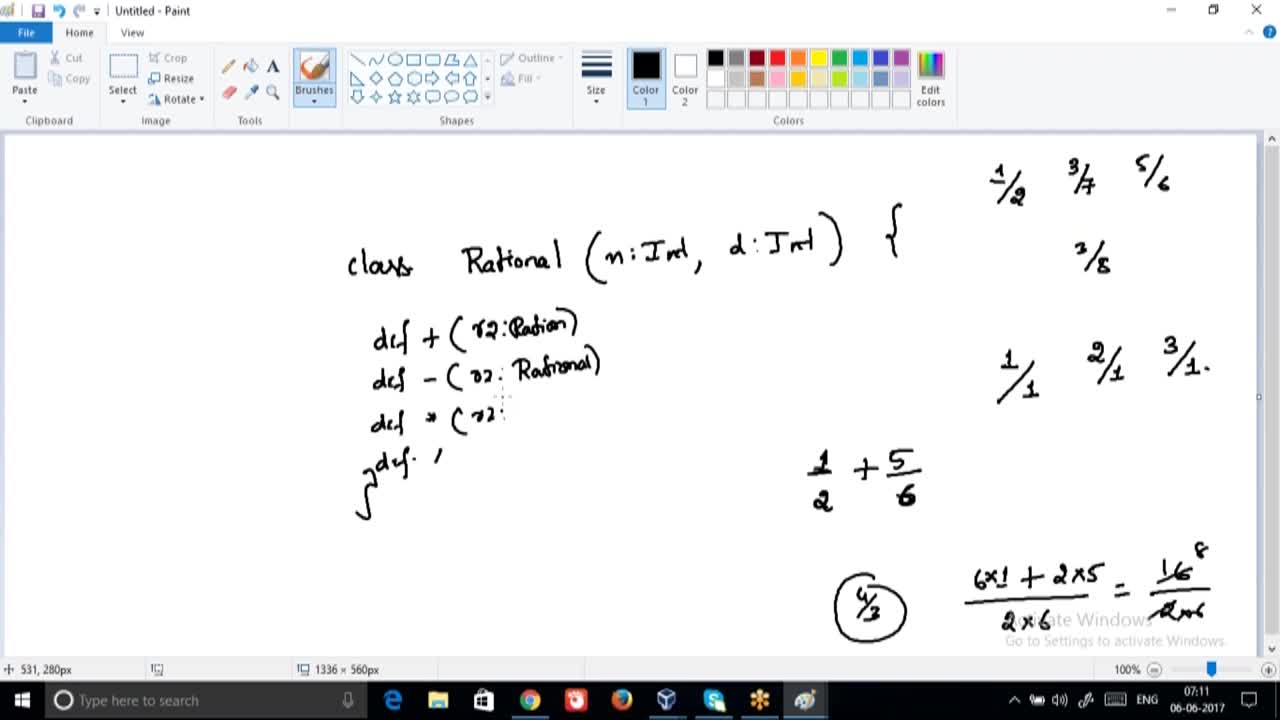 Untitled - Paint
File Home View
Paste
Cut
Copy
Clipboard
Select
Crop
Resize
Rotate
Image
A
Tools
Brushes
Outline
Fill
Shapes
Size
Color 1
Color 2
Colors
Edit colors
1/2 3/7 5/6
class Rational (n:Int, d:Int) {
3/8
def + (r2:Ration)
def - (r2: Rational)
def * (r2:
def. /
}
1/1 2/1 3/1.
1/2 + 5/6
4/3
6x1 + 2x5 / 2x6 = 16 8 / 2x6
Activate Windows
Go to Settings to activate Windows.
531, 280px
1336 × 560px
100%
Type here to search
ENG
07:11
06-06-2017